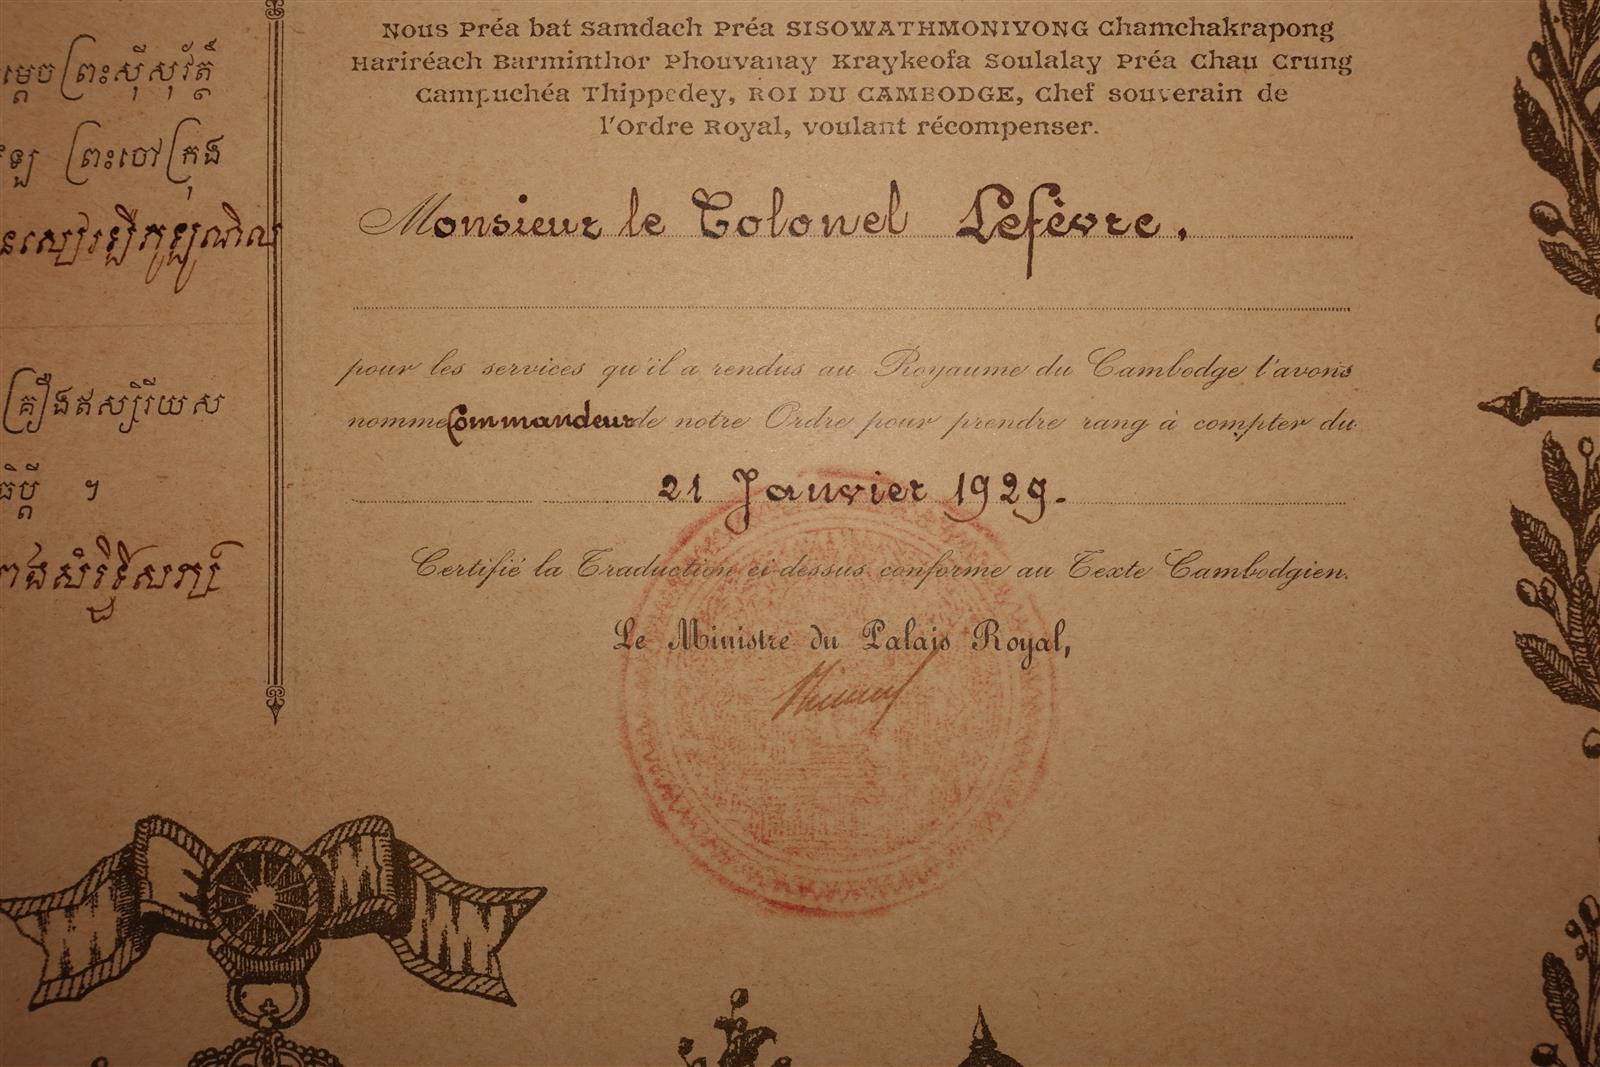 Nous Préa bat Samdach Préa SISOWATHMONIVONG Chamchakrapong
Hariréach Barminthor Phouvanay Kraykeofa Soulalay Préa Chau Crung
Campuchéa Thippedey, ROI DU CAMBODGE, Chef souverain de
l'Ordre Royal, voulant récompenser.
Monsieur le Colonel Lefèvre.
pour les services qu'il a rendus au Royaume du Cambodge l'avons
nomme Commandeur de notre Ordre pour prendre rang à compter du
21 Janvier 1929.
Certifié la Traduction ci-dessus conforme au Texte Cambodgien.
Le Ministre du Palais Royal,
ព្រះស៊ីសុវត្ថិ៍
ព្រះចៅក្រុង
គ្រឿងឥស្សិរិយស
ធិប្តី ។